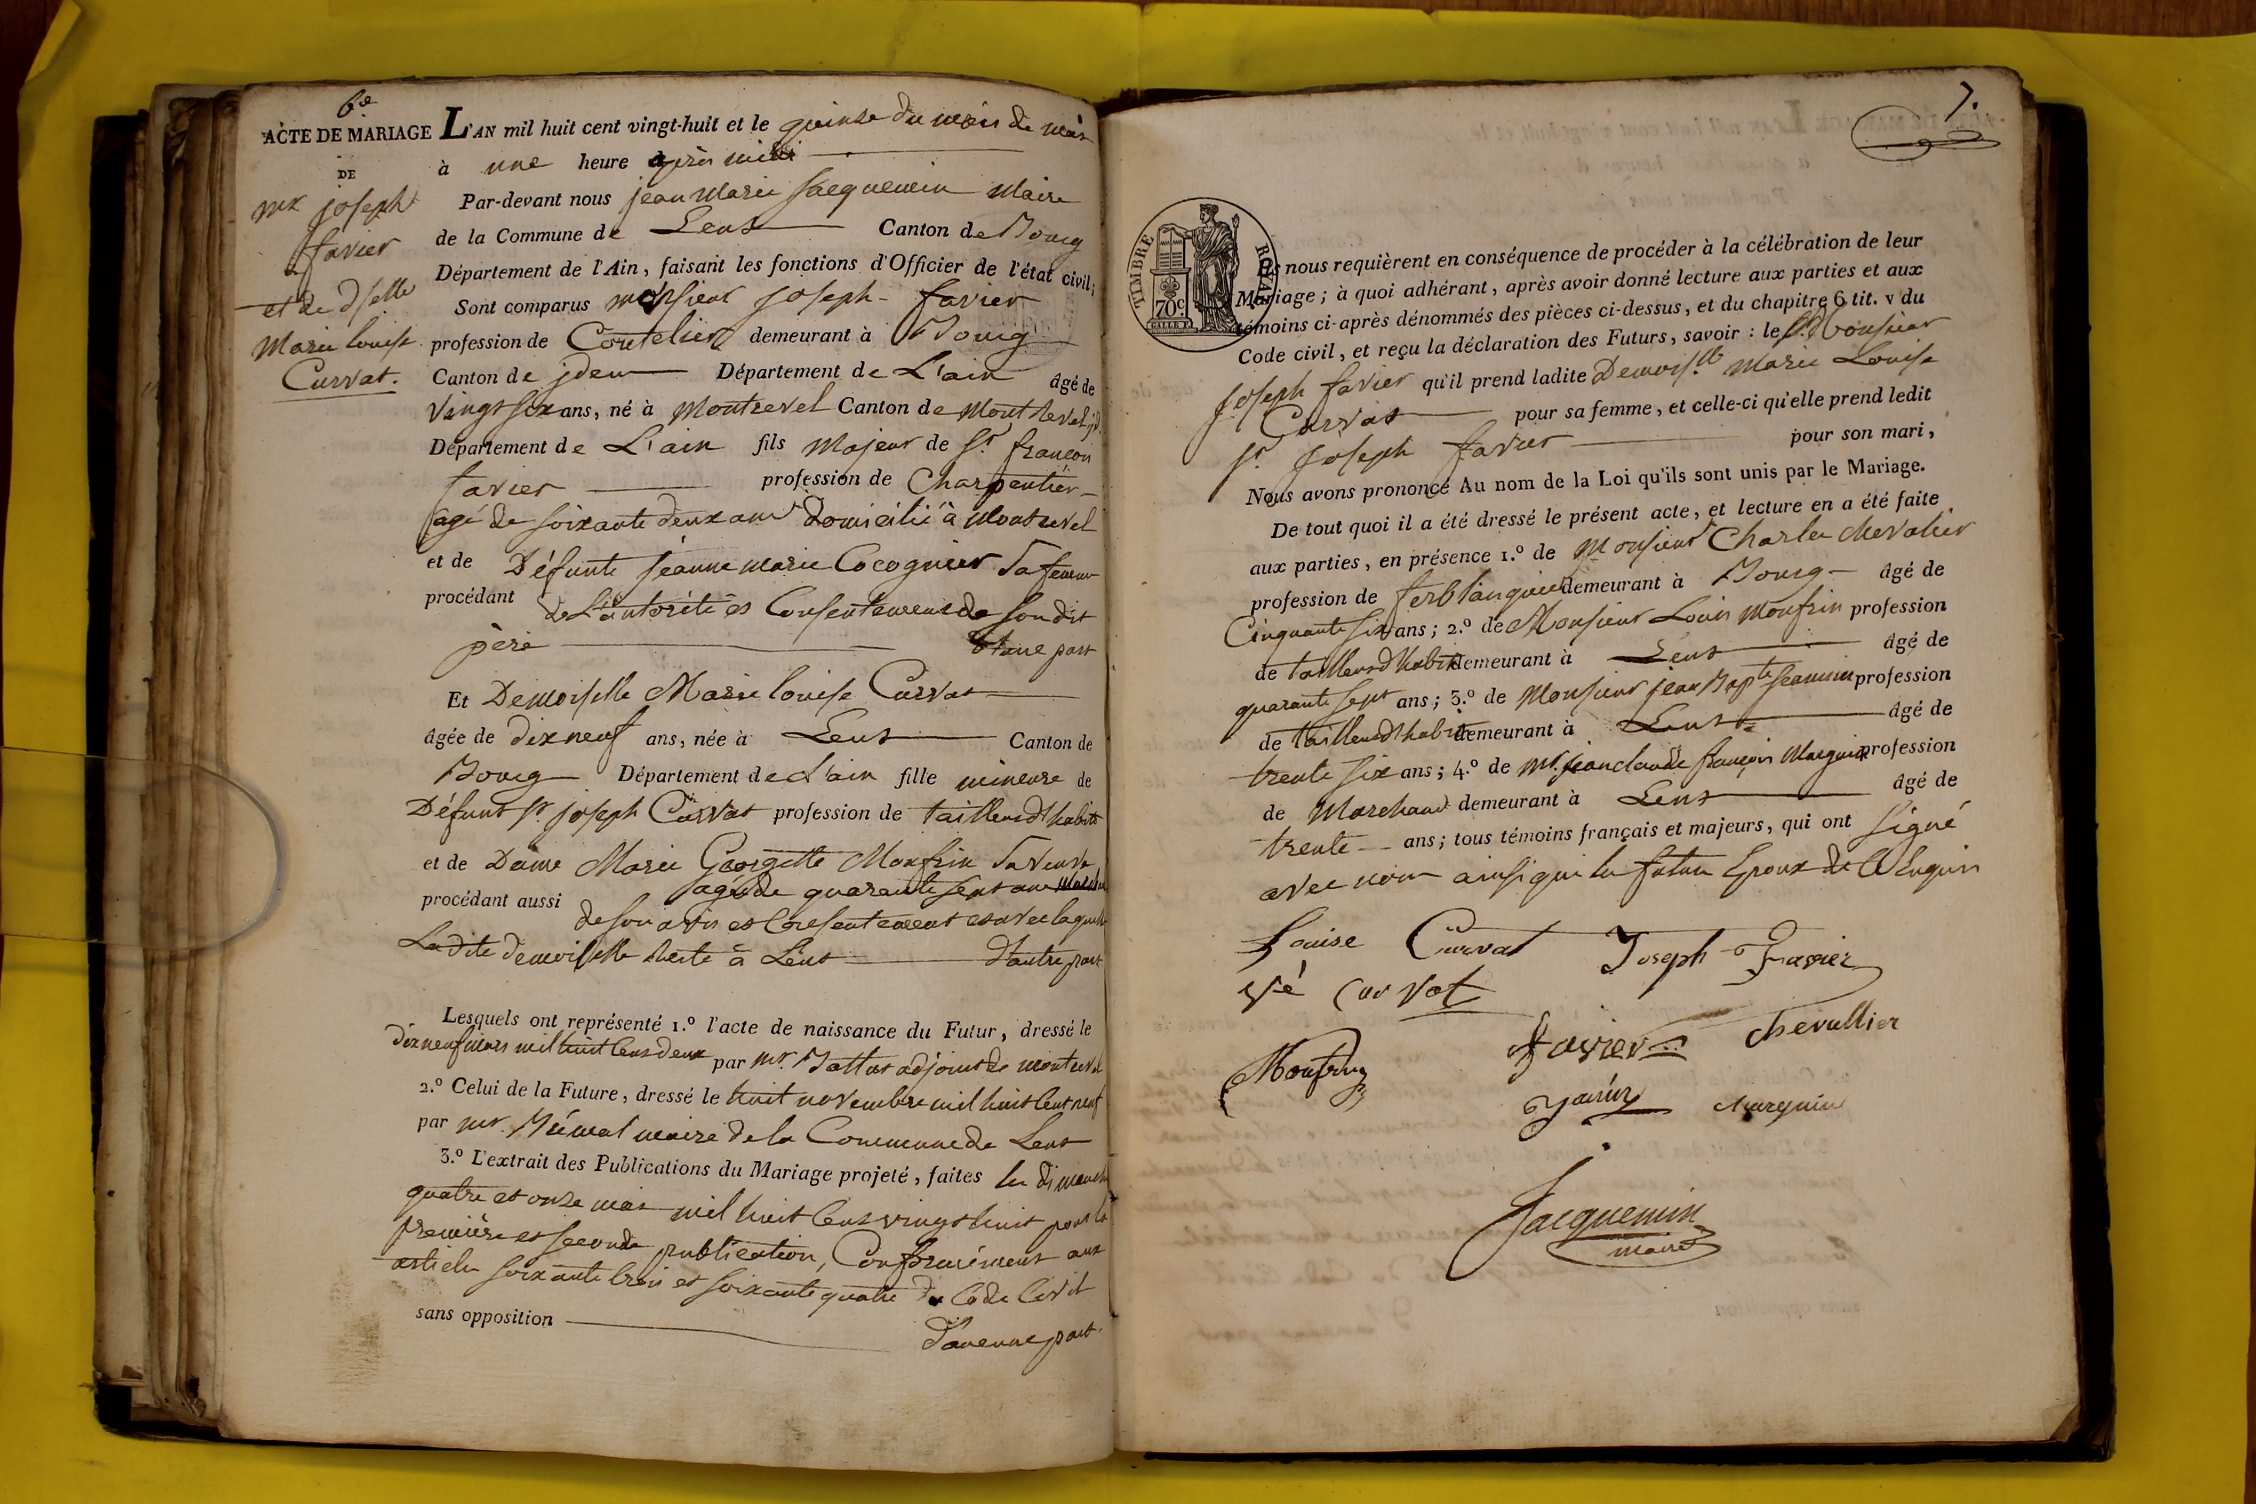 6e
ACTE DE MARIAGE
DE
mr joseph
favier
et de dselle
Marie louise
Curvat.
L'AN mil huit cent vingt-huit et le quinze du mois de mars
à une heure après midi
Par-devant nous jean Marie Jacquemin Maire
de la Commune de Lent Canton de Bourg
Département de l'Ain, faisant les fonctions d'Officier de l'état civil;
Sont comparus monsieur Joseph favier
profession de Coutelier demeurant à Bourg
Canton de jdem Département de L'ain âgé de
Vingt six ans, né à Montrevel Canton de Montrevel
Département de L'ain fils Majeur de Sr. françois
favier profession de Charpentier
agé de soixante deux ans domicilié à Montrevel
et de Défunte jeanne marie Cocognier Sa femme
procédant de L'autorité et Consentement de son dit
père d'une part
Et Demoiselle Marie louise Curvat
âgée de dix neuf ans, née à Lent Canton de
Bourg Département de L'ain fille mineure de
Défunt sr joseph Curvat profession de tailleur d'habits
et de Dame Marie Georgette Monfrin Sa veuve
agée de quarante sept ans
procédant aussi de son avis et Consentement et avec laquelle
La dite demoiselle reste à Lent d'autre part
Lesquels ont représenté 1.º l'acte de naissance du Futur, dressé le
dix neuf mars mil huit Cent deux par mr. adjoint de montrevel
2.º Celui de la Future, dressé le huit novembre mil huit Cent neuf
par mr. maire de la Commune de Lent
3.º L'extrait des Publications du Mariage projeté, faites les dimanches
quatre et onze mars mil huit Cent vingt huit pour la
première et seconde publication, Conformément aux
articles soixante trois et soixante quatre du Code Civil
sans opposition
d'aucune part.
7.
TIMBRE ROYAL
70 c
Ils nous requièrent en conséquence de procéder à la célébration de leur
Mariage; à quoi adhérant, après avoir donné lecture aux parties et aux
témoins ci-après dénommés des pièces ci-dessus, et du chapitre 6 tit. v du
Code civil, et reçu la déclaration des Futurs, savoir: le Monsieur
Joseph favier qu'il prend ladite Demois.lle Marie Louise
Curvat pour sa femme, et celle-ci qu'elle prend ledit
sr. Joseph favier pour son mari,
Nous avons prononcé Au nom de la Loi qu'ils sont unis par le Mariage.
De tout quoi il a été dressé le présent acte, et lecture en a été faite
aux parties, en présence 1.º de Monsieur Charles chevalier
profession de ferblanquier demeurant à Bourg âgé de
Cinquante six ans; 2.º de Monsieur Louis Monfrin profession
de tailleur d'habits demeurant à Lent âgé de
quarante sept ans; 3.º de Monsieur jean Bapte jeannin profession
de tailleur d'habits demeurant à Lent âgé de
trente six ans; 4.º de mr. jean claude françois Marguin profession
de Marchand demeurant à Lent âgé de
trente ans; tous témoins français et majeurs, qui ont signé
avec nous ainsi que les futurs Epoux de Ce Enquis
Louise Curvat Joseph Favier
Ve Curvat
Favier chevallier
Monfrin
Marguin
Jacquemin
maire